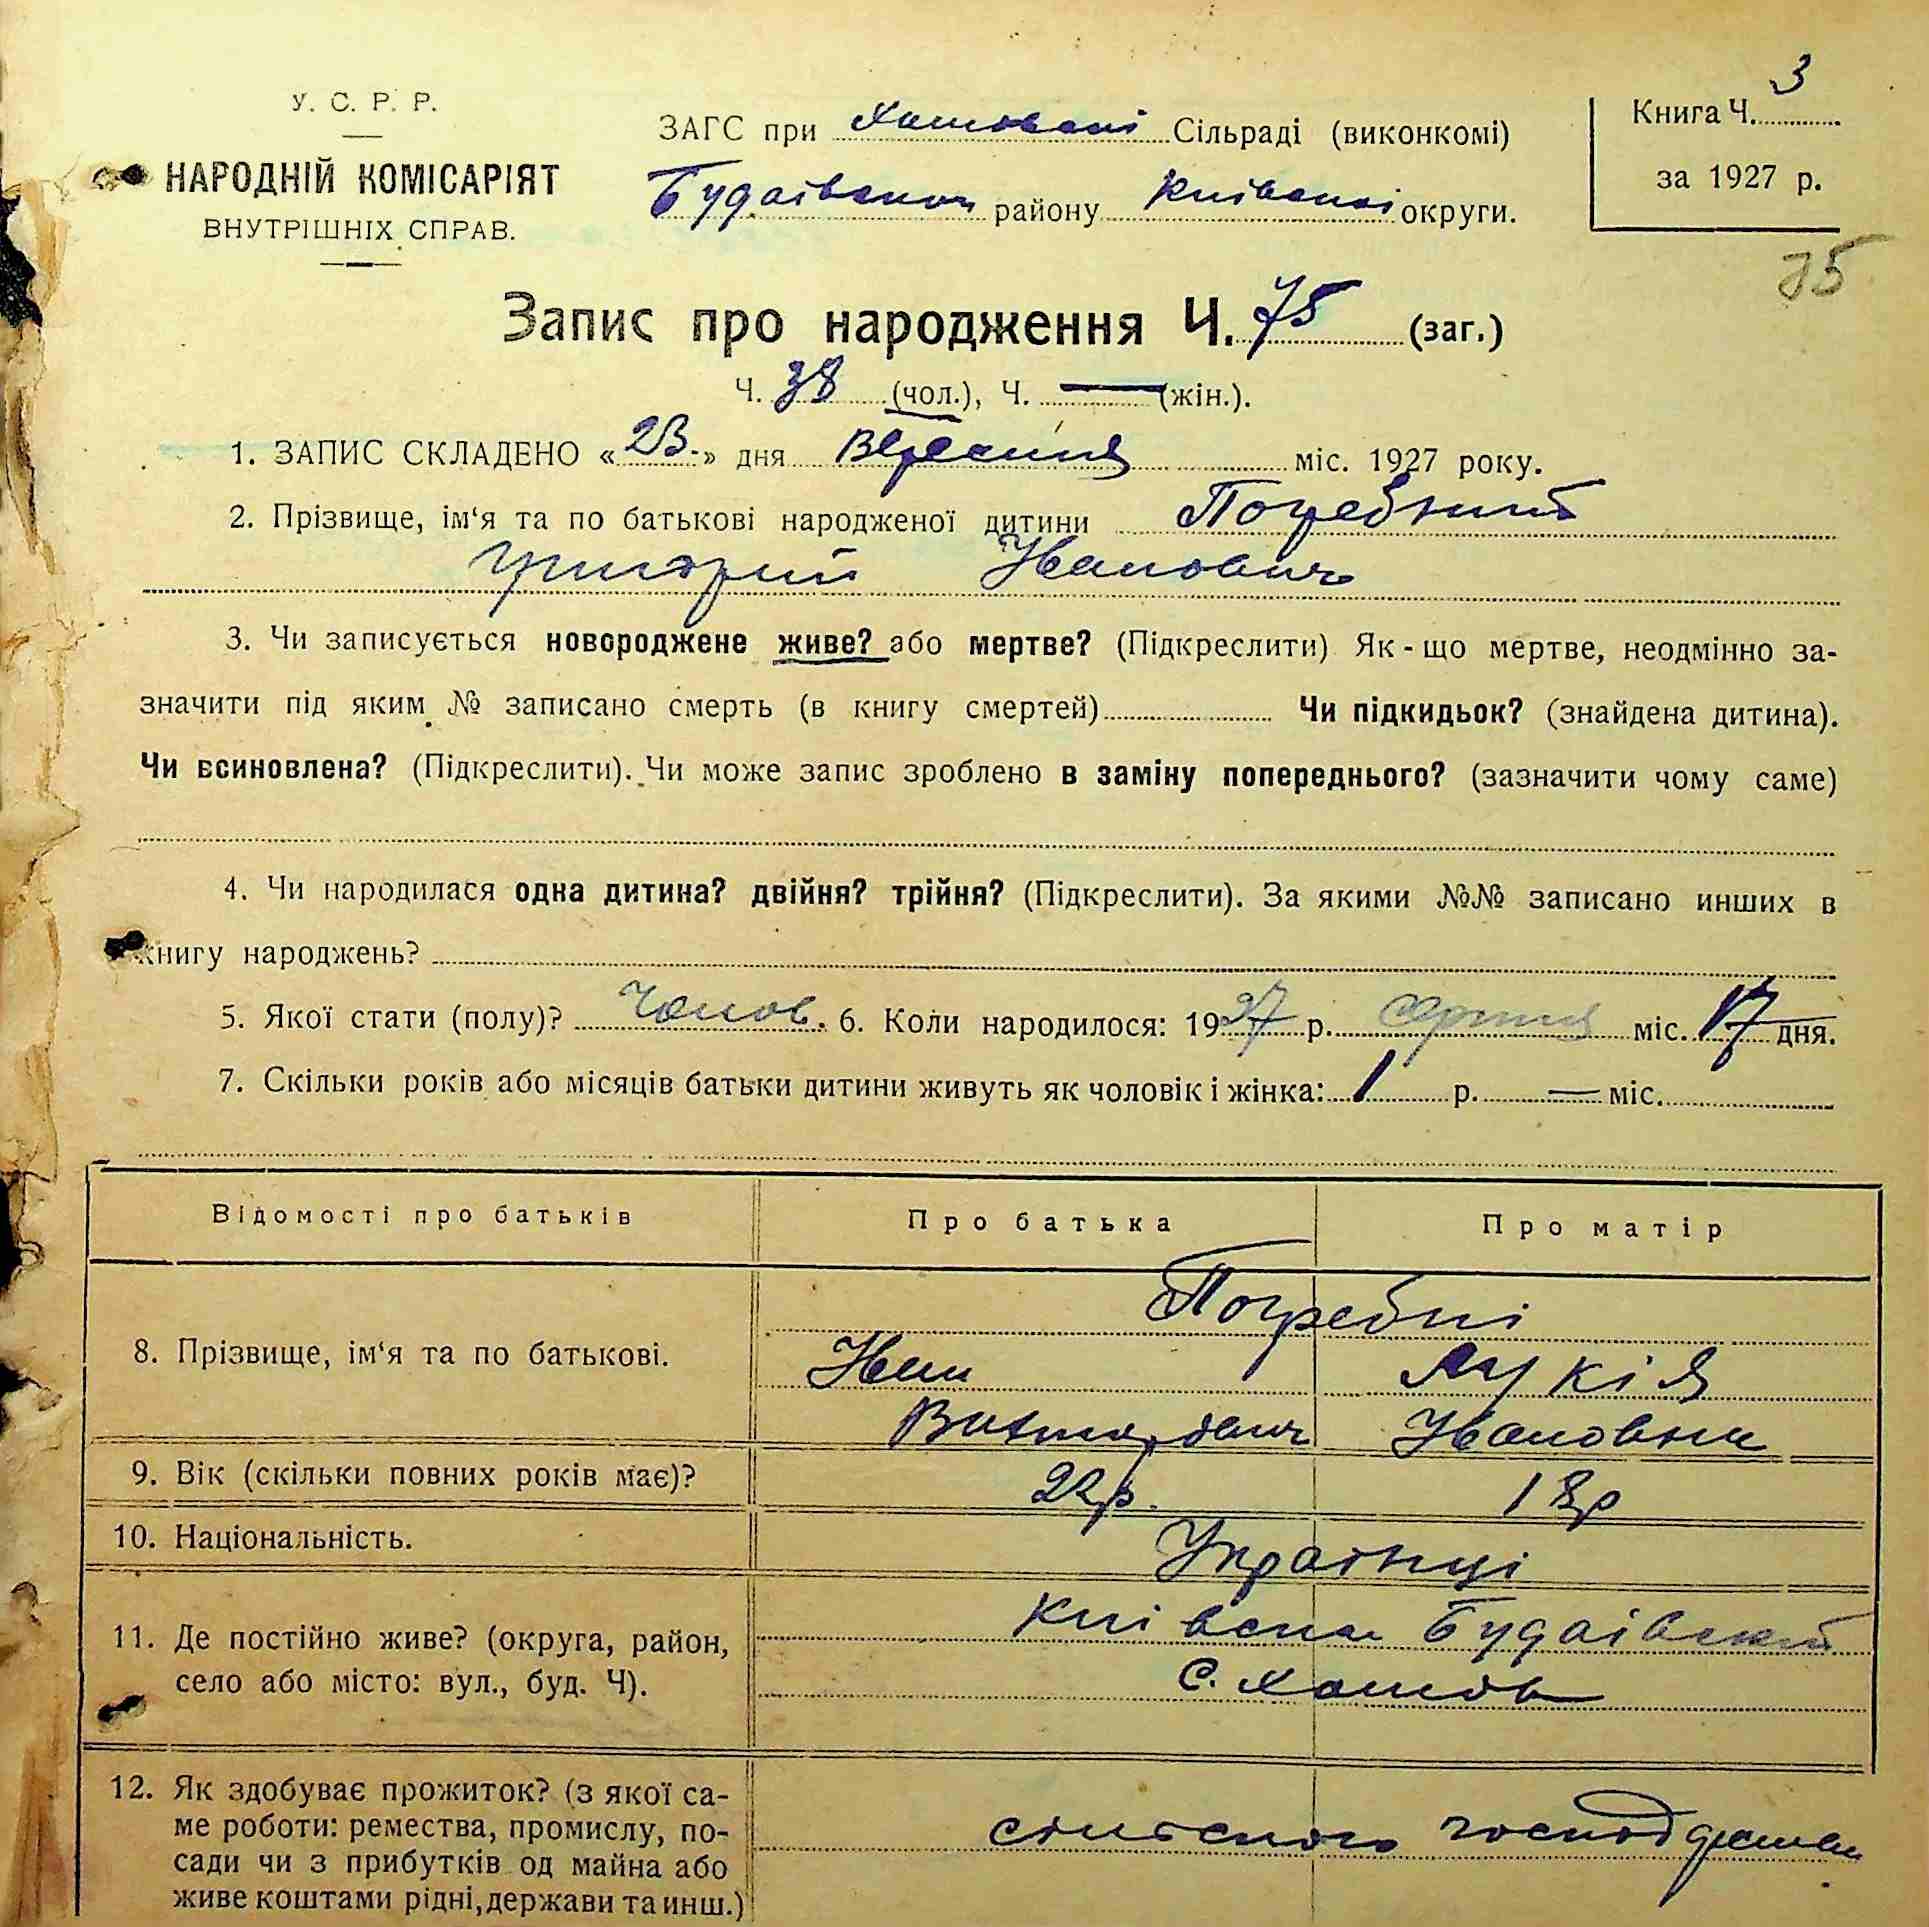 У. С. Р. Р.
НАРОДНІЙ КОМІСАРІЯТ
ВНУТРІШНІХ СПРАВ.
ЗАГС при Хотовскі Сільраді (виконкомі)
Будаівського району Київскої округи.
Книга Ч. 3
за 1927 р.
75
Запис про народження Ч. 75 (заг.)
Ч. 38 (чол.), Ч. — (жін.).
1. ЗАПИС СКЛАДЕНО «23» дня Вересння міс. 1927 року.
2. Прізвище, ім‘я та по батькові народженої дитини Погребний
Григорий Иванович
3. Чи записується новороджене живе? або мертве? (Підкреслити) Як - що мертве, неодмінно за-
значити під яким № записано смерть (в книгу смертей) Чи підкидьок? (знайдена дитина).
Чи всиновлена? (Підкреслити). Чи може запис зроблено в заміну попереднього? (зазначити чому саме)
4. Чи народилася одна дитина? двійня? трійня? (Підкреслити). За якими №№ записано инших в
книгу народжень?
5. Якої стати (полу)? Чолов. 6. Коли народилося: 1927 р. серпня міс. 17 дня.
7. Скільки років або місяців батьки дитини живуть як чоловік і жінка: 1 р. — міс.
Відомості про батьків Про батька Про матір
8. Прізвище, ім‘я та по батькові.
Погребні
Иван Лукія
Ивановна
9. Вік (скільки повних років має)? 22р. 18р
10. Національність. Українці
11. Де постійно живе? (округа, район,
село або місто: вул., буд. Ч).
Київська Будаівский
с. Хотів
12. Як здобуває прожиток? (з якої са-
ме роботи: ремества, промислу, по-
сади чи з прибутків од майна або
живе коштами рідні, держави та инш.)
сільского господарства